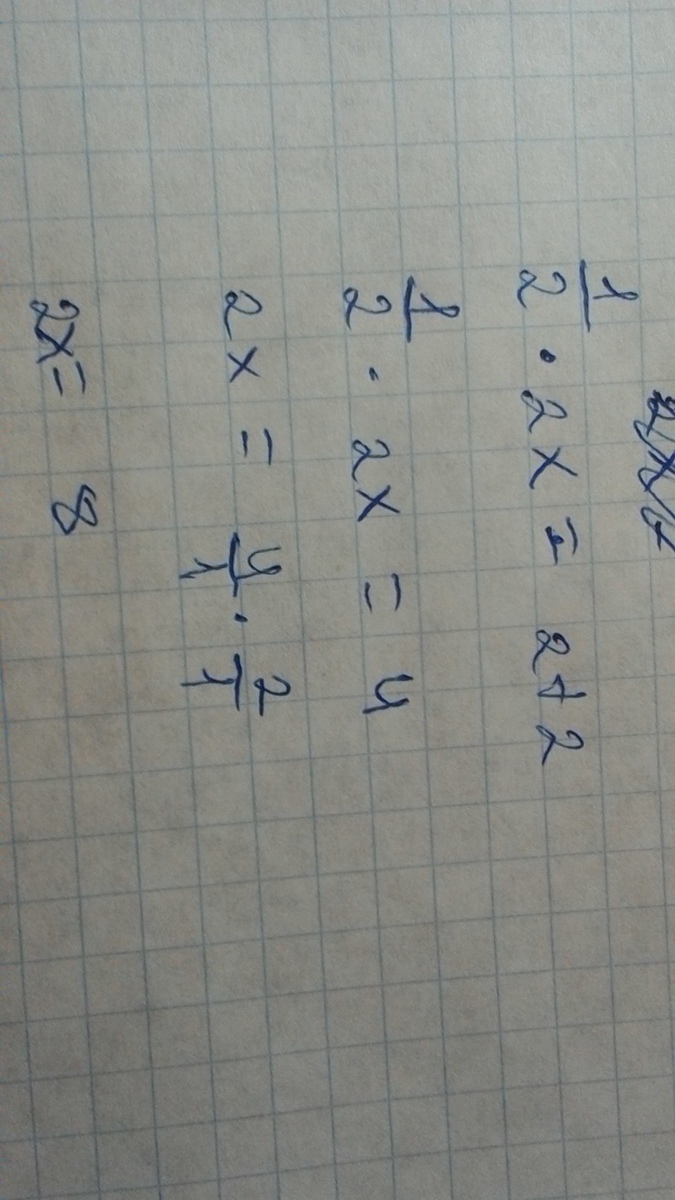 1/2 · 2x = 2+2
1/2 · 2x = 4
2x = 4/1 · 2/1
2x = 8